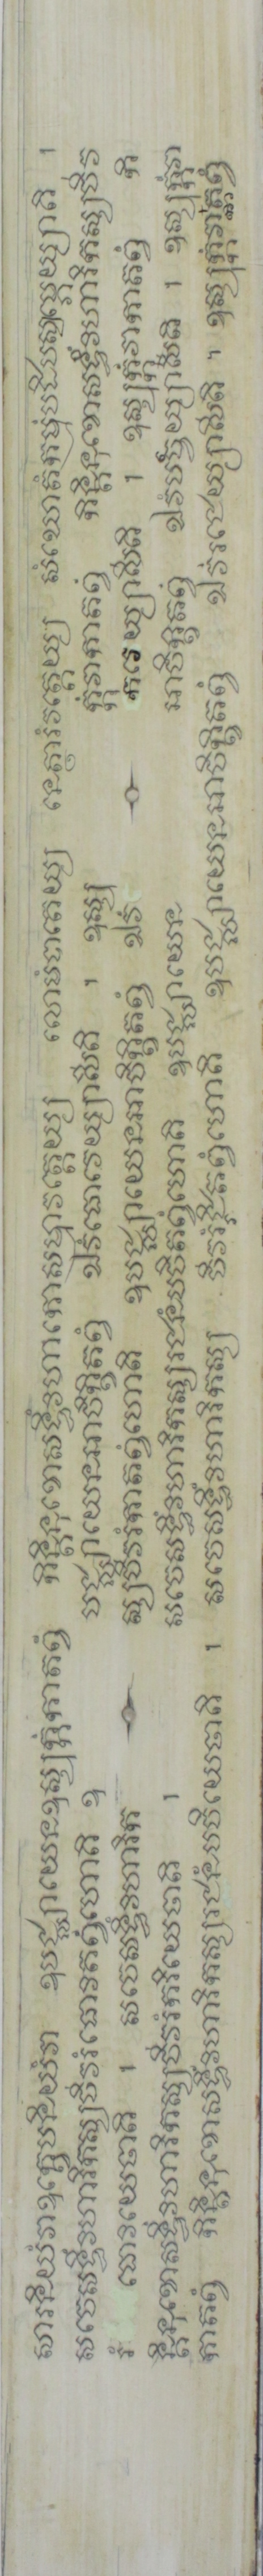 សារនិយំវាឧក្ខេបនិយំវា ឧបជ្ឈាយេនឧស្សុក្កំកាតព្វំ កិន្តិនុខោសទ្ធិវិហារិកោសម្មាវត្តេយ្យ លោមំបាតេយ្យ នេត្ថារំវត្តេយ្យ សំឃោតំកម្មំបដិបស្សម្ភេយ្យាតិ ។
សចេសទ្ធិវិហារិកស្សចីវរំធោវិតព្វំហោតិ ឧបជ្ឈាយេនអាចិក្ខិតព្វំ ឯវំធោវេយ្យាសីតិ ។ ឧស្សុក្កំវាកាតព្វំ កិន្តិនុខោសទ្ធិវិហារិកស្សចីវ
រំ ធោវិយេថាតិ ។ សចេសទ្ធិវិហារិកស្សចីវរំកាតព្វំហោតិ ឧបជ្ឈាយេនអាចិក្ខិតព្វំ ឯវំករេយ្យាសីតិ ។ ឧស្សុក្កំវាកាតព្វំ កិ
ន្តិនុខោសទ្ធិវិហារិកស្សចីវរំករិយេថាតិ ។ សចេសទ្ធិវិហារិកស្សរជនំបចិតព្វំហោតិ ឧបជ្ឈាយេន អាចិក្ខិតព្វំ ឯវំបចេយ្យាសីតិ ។ ឧស្សុក្កំវា
កាតព្វំ កិន្តិនុខោសទ្ធិវិហារិកស្សរជនំបចិយេថាតិ ។ សចេសទ្ធិវិហារិកស្ស ចីវរំរជិតព្វំហោតិ ឧបជ្ឈាយេនអាចិក្ខិតព្វំ ឯវំរជេយ្យាសីតិ ។ ឧស្សុក្កំវាកាតព្វំ